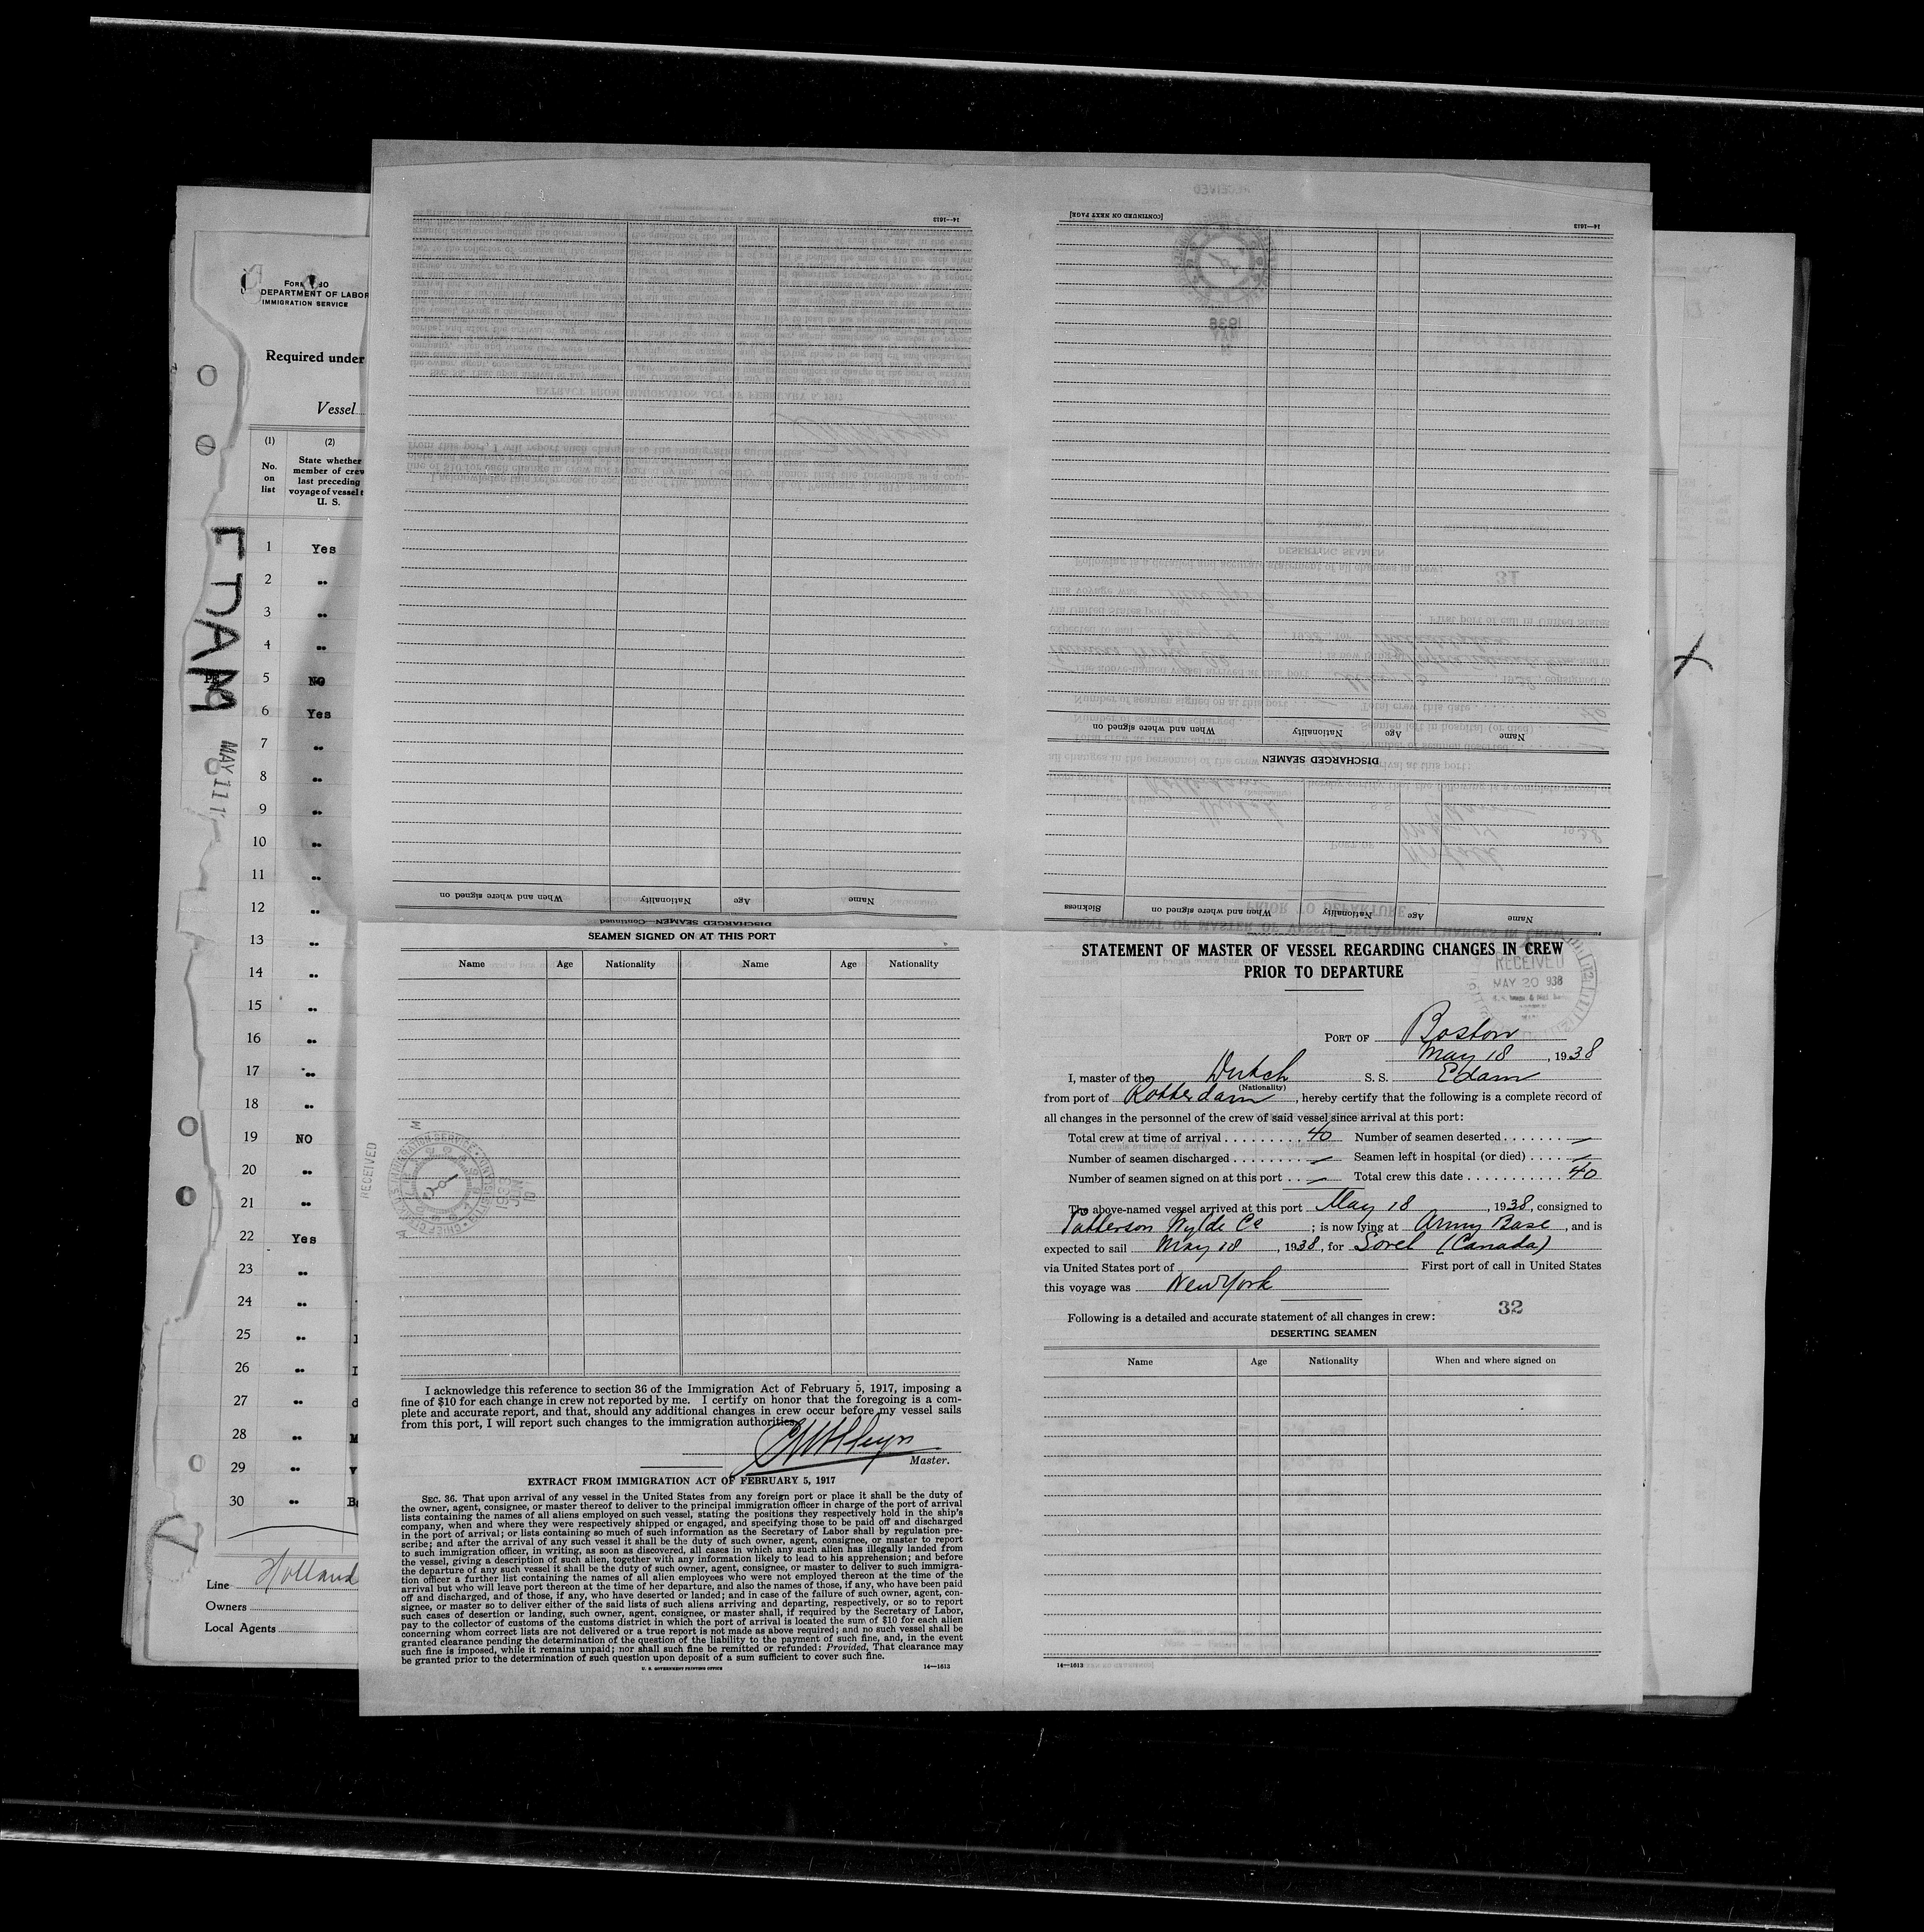 FORM
DEPARTMENT OF LABOR
IMMIGRATION SERVICE
Required under
Vessel
(1) (2)
No. on list
State whether member of crew last preceding voyage of vessel t U. S.
EDAM
MAY 11
1 Yes
2 "
3 "
4 "
5 NO
6 Yes
7 "
8 "
9 "
10 "
11 "
12 "
13 "
14 "
15 "
16 "
17 "
18 "
19 NO
20 "
21 "
22 Yes
23 "
24 "
25 "
26 "
27 "
28 "
29 "
30 "
Line Holland
Owners
Local Agents
14—1613
DISCHARGED SEAMEN—Continued
Name Age Nationality When and where signed on
[CONTINUED ON NEXT PAGE]
14—1613
DISCHARGED SEAMEN
Name Age Nationality When and where signed on
Name Age Nationality When and where signed on Sickness
SEAMEN SIGNED ON AT THIS PORT
Name Age Nationality Name Age Nationality
RECEIVED
I acknowledge this reference to section 36 of the Immigration Act of February 5, 1917, imposing a
fine of $10 for each change in crew not reported by me. I certify on honor that the foregoing is a com-
plete and accurate report, and that, should any additional changes in crew occur before my vessel sails
from this port, I will report such changes to the immigration authorities.
Master.
EXTRACT FROM IMMIGRATION ACT OF FEBRUARY 5, 1917
SEC. 36. That upon arrival of any vessel in the United States from any foreign port or place it shall be the duty of
the owner, agent, consignee, or master thereof to deliver to the principal immigration officer in charge of the port of arrival
lists containing the names of all aliens employed on such vessel, stating the positions they respectively hold in the ship's
company, when and where they were respectively shipped or engaged, and specifying those to be paid off and discharged
in the port of arrival; or lists containing so much of such information as the Secretary of Labor shall by regulation pre-
scribe; and after the arrival of any such vessel it shall be the duty of such owner, agent, consignee, or master to report
to such immigration officer, in writing, as soon as discovered, all cases in which any such alien has illegally landed from
the vessel, giving a description of such alien, together with any information likely to lead to his apprehension; and before
the departure of any such vessel it shall be the duty of such owner, agent, consignee, or master to deliver to such immigra-
tion officer a further list containing the names of all alien employees who were not employed thereon at the time of the
arrival but who will leave port thereon at the time of her departure, and also the names of those, if any, who have been paid
off and discharged, and of those, if any, who have deserted or landed; and in case of the failure of such owner, agent, con-
signee, or master so to deliver either of the said lists of such aliens arriving and departing, respectively, or so to report
such cases of desertion or landing, such owner, agent, consignee, or master shall, if required by the Secretary of Labor,
pay to the collector of customs of the customs district in which the port of arrival is located the sum of $10 for each alien
concerning whom correct lists are not delivered or a true report is not made as above required; and no such vessel shall be
granted clearance pending the determination of the question of the liability to the payment of such fine, and, in the event
such fine is imposed, while it remains unpaid; nor shall such fine be remitted or refunded: Provided, That clearance may
be granted prior to the determination of such question upon deposit of a sum sufficient to cover such fine.
U. S. GOVERNMENT PRINTING OFFICE 14—1613
STATEMENT OF MASTER OF VESSEL REGARDING CHANGES IN CREW
PRIOR TO DEPARTURE
RECEIVED
MAY 20 938
PORT OF Boston
May 18, 1938
I, master of the Dutch S. S. Edam
(Nationality)
from port of Rotterdam, hereby certify that the following is a complete record of
all changes in the personnel of the crew of said vessel since arrival at this port:
Total crew at time of arrival 40 Number of seamen deserted —
Number of seamen discharged — Seamen left in hospital (or died) —
Number of seamen signed on at this port — Total crew this date 40
The above-named vessel arrived at this port May 18, 1938, consigned to
Patterson Wylde Co; is now lying at Army Base, and is
expected to sail May 18, 1938, for Sorel (Canada)
via United States port of First port of call in United States
this voyage was New York
32
Following is a detailed and accurate statement of all changes in crew:
DESERTING SEAMEN
Name Age Nationality When and where signed on
14—1613